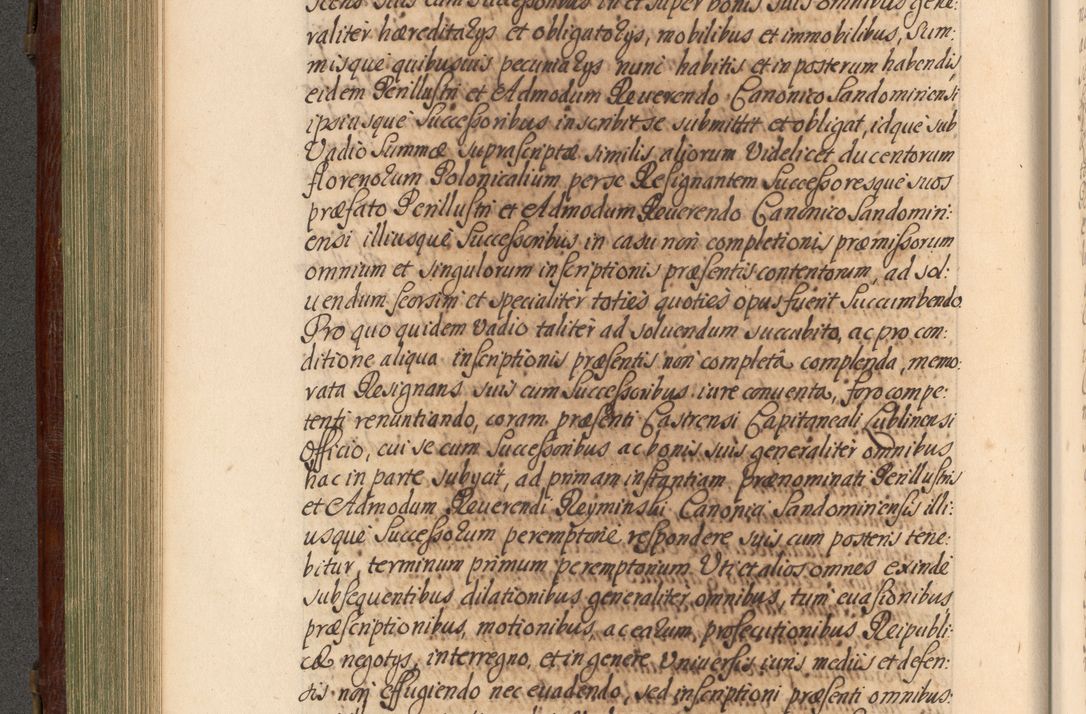 scens suis cum successoribus in et super bonis suis omnibus gene:
raliter hæreditarys et obligatorys, mobilibus et immobilibus, sum:
misque quibusuis pecuniarys nunc habitis et in posterum habendis,
eidem Perillustri et Admodum Reuerendo Canonico Sandomiriensi
ipsiusque Successoribus inscribit se submittit et obligat, idque sub
Vadio Summæ suprascriptæ similis aliorum Videlicet ducentorum
florenorum Polonicalium per se Resignantem Successoresque suos
præfato Perillustri et Admodum Reuerendo Canonico Sandomiri:
ensi illiusque Successoribus in casu non completionis præmissorum
omnium et singulorum inscriptionis præsentis contentorum, ad sol:
uendum seorsim et specialiter toties quoties opus fuerit Succumbendo
Pro quo quidem Vadio taliter ad soluendum succubito, ac pro con:
ditione aliqua inscriptionis præsentis non completa complenda, memo:
rata Resignans suis cum Successoribus iure conuenta, foro compe:
tenti renuntiando, coram præsenti Castrensi Capitaneali Lublinensi
Officio, cui se cum Successoribus ac bonis suis generaliter omnibus
hac in parte subycit, ad primam instantiam prænominati Perillustris
et Admodum Reuerendi Reyminski Canonici Sandomiriensis illi:
usque Successorum peremptorie respondere suis cum posteris tene:
bitur, terminum primum peremptorium Uti et alios omnes exinde
subsequentibus dilationibus generaliter omnibus, tum euasionibus,
præscriptionibus, motionibus, ac earum, prosecutionibus Reipubli:
cæ negotys, interregno, et in genere Universis iuris mediis et defen:
sis non effugiendo nec euadendo, sed inscriptioni præsenti omnibus: